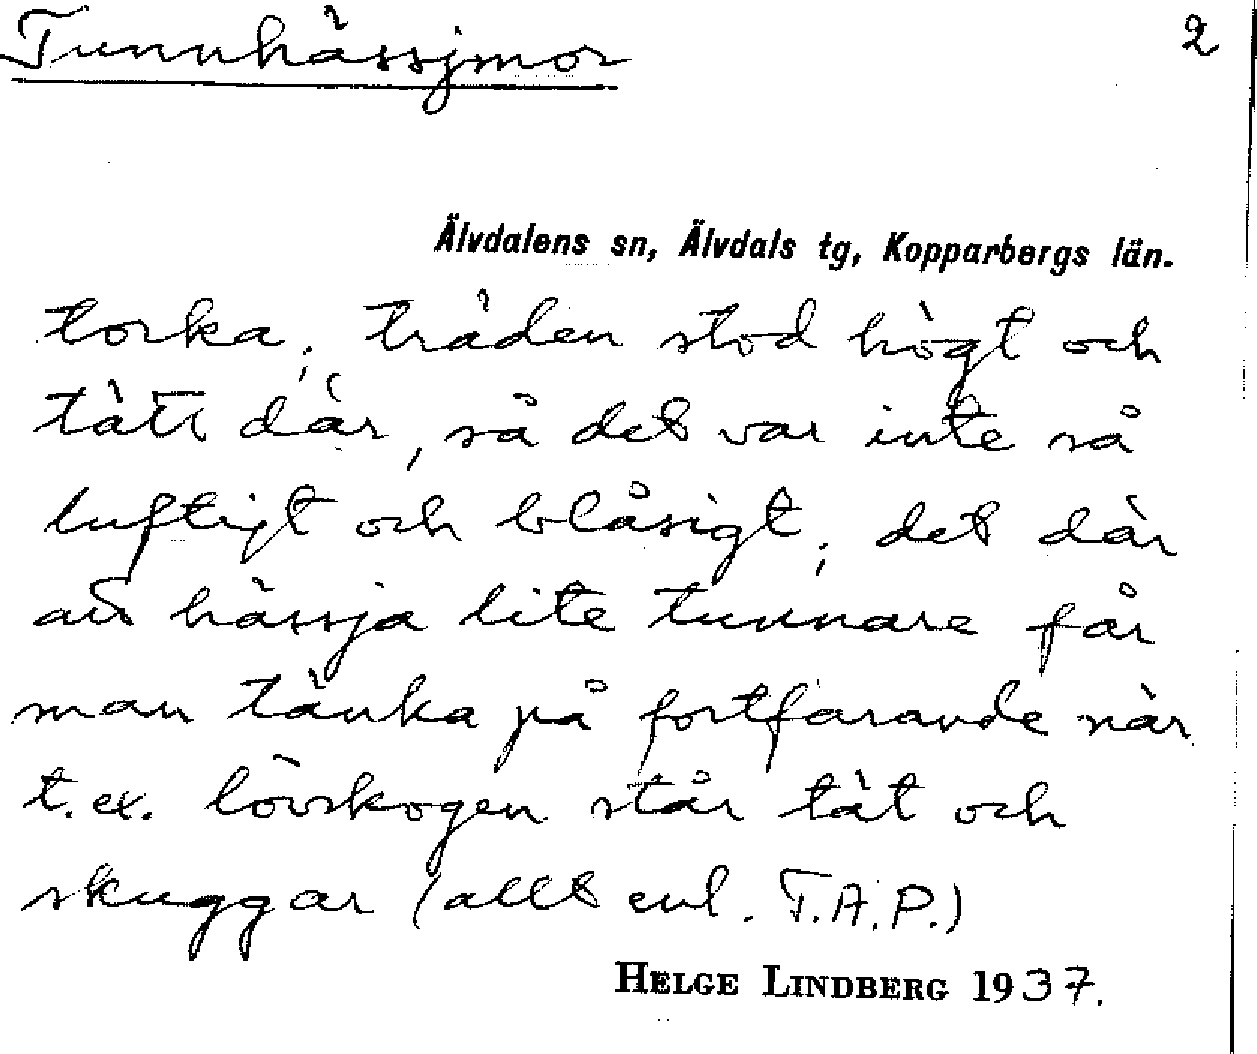 Tunnhässjmor
2
Älvdalens sn, Älvdals tg, Kopparbergs län.
torka; träden stod högt och
tätt där, så det var inte så
luftigt och blåsigt; det där
att hässja lite tunnare får
man tänka på fortfarande när
t.ex. lövskogen står tät och
skuggar (allt enl. T.A.P.)
HELGE LINDBERG 1937.